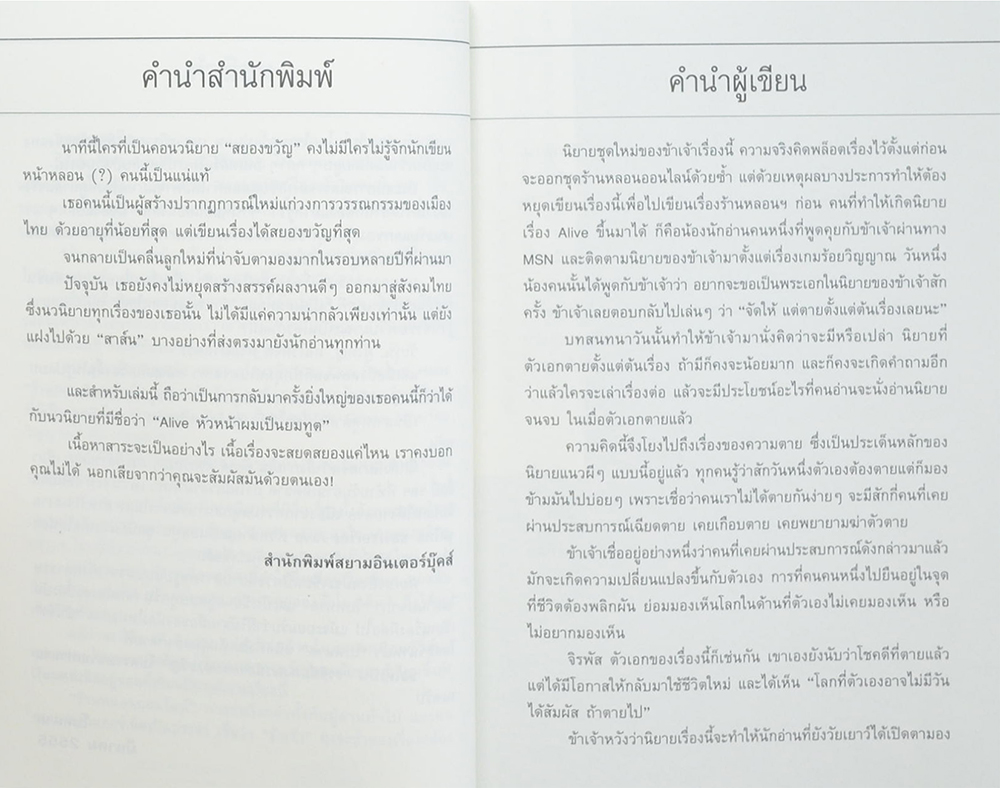 คำนำสำนักพิมพ์
นาทีนี้ใครที่เป็นคอนวนิยาย “สยองขวัญ” คงไม่มีใครไม่รู้จักนักเขียน
หน้าหลอน (?) คนนี้เป็นแน่แท้
เธอคนนี้เป็นผู้สร้างปรากฏการณ์ใหม่แก่วงการวรรณกรรมของเมือง
ไทย ด้วยอายุที่น้อยที่สุด แต่เขียนเรื่องได้สยองขวัญที่สุด
จนกลายเป็นคลื่นลูกใหม่ที่น่าจับตามองมากในรอบหลายปีที่ผ่านมา
ปัจจุบัน เธอยังคงไม่หยุดสร้างสรรค์ผลงานดีๆ ออกมาสู่สังคมไทย
ซึ่งนวนิยายทุกเรื่องของเธอนั้น ไม่ได้มีแค่ความน่ากลัวเพียงเท่านั้น แต่ยัง
แฝงไปด้วย “สาส์น” บางอย่างที่ส่งตรงมายังนักอ่านทุกท่าน
และสำหรับเล่มนี้ ถือว่าเป็นการกลับมาครั้งยิ่งใหญ่ของเธอคนนี้ก็ว่าได้
กับนวนิยายที่มีชื่อว่า “Alive หัวหน้าผมเป็นยมทูต”
เนื้อหาสาระจะเป็นอย่างไร เนื้อเรื่องจะสยดสยองแค่ไหน เราคงบอก
คุณไม่ได้ นอกเสียจากว่าคุณจะสัมผัสมันด้วยตนเอง!
สำนักพิมพ์สยามอินเตอร์บุ๊คส์
คำนำผู้เขียน
นิยายชุดใหม่ของข้าเจ้าเรื่องนี้ ความจริงคิดพล็อตเรื่องไว้ตั้งแต่ก่อน
จะออกชุดร้านหลอนออนไลน์ด้วยซ้ำ แต่ด้วยเหตุผลบางประการทำให้ต้อง
หยุดเขียนเรื่องนี้เพื่อไปเขียนเรื่องร้านหลอนฯ ก่อน คนที่ทำให้เกิดนิยาย
เรื่อง Alive ขึ้นมาได้ ก็คือน้องนักอ่านคนหนึ่งที่พูดคุยกับข้าเจ้าผ่านทาง
MSN และติดตามนิยายของข้าเจ้ามาตั้งแต่เรื่องเกมร้อยวิญญาณ วันหนึ่ง
น้องคนนั้นได้พูดกับข้าเจ้าว่า อยากจะขอเป็นพระเอกในนิยายของข้าเจ้าสัก
ครั้ง ข้าเจ้าเลยตอบกลับไปเล่นๆ ว่า “จัดให้ แต่ตายตั้งแต่ต้นเรื่องเลยนะ”
บทสนทนาวันนั้นทำให้ข้าเจ้ามานั่งคิดว่าจะมีหรือเปล่า นิยายที่
ตัวเอกตายตั้งแต่ต้นเรื่อง ถ้ามีก็คงจะน้อยมาก และก็คงจะเกิดคำถามอีก
ว่าแล้วใครจะเล่าเรื่องต่อ แล้วจะมีประโยชน์อะไรที่คนอ่านจะนั่งอ่านนิยาย
จนจบ ในเมื่อตัวเอกตายแล้ว
ความคิดนี้จึงโยงไปถึงเรื่องของความตาย ซึ่งเป็นประเด็นหลักของ
นิยายแนวผีๆ แบบนี้อยู่แล้ว ทุกคนรู้ว่าสักวันหนึ่งตัวเองต้องตายแต่ก็มอง
ข้ามมันไปบ่อยๆ เพราะเชื่อว่าคนเราไม่ได้ตายกันง่ายๆ จะมีสักกี่คนที่เคย
ผ่านประสบการณ์เฉียดตาย เคยเกือบตาย เคยพยายามฆ่าตัวตาย
ข้าเจ้าเชื่ออยู่อย่างหนึ่งว่าคนที่เคยผ่านประสบการณ์ดังกล่าวมาแล้ว
มักจะเกิดความเปลี่ยนแปลงขึ้นกับตัวเอง การที่คนคนหนึ่งไปยืนอยู่ในจุด
ที่ชีวิตต้องพลิกผัน ย่อมมองเห็นโลกในด้านที่ตัวเองไม่เคยมองเห็น หรือ
ไม่อยากมองเห็น
จิรพัส ตัวเอกของเรื่องนี้ก็เช่นกัน เขาเองยังนับว่าโชคดีที่ตายแล้ว
แต่ได้มีโอกาสให้กลับมาใช้ชีวิตใหม่ และได้เห็น “โลกที่ตัวเองอาจไม่มีวัน
ได้สัมผัส ถ้าตายไป”
ข้าเจ้าหวังว่านิยายเรื่องนี้จะทำให้นักอ่านที่ยังวัยเยาว์ได้เปิดตามอง